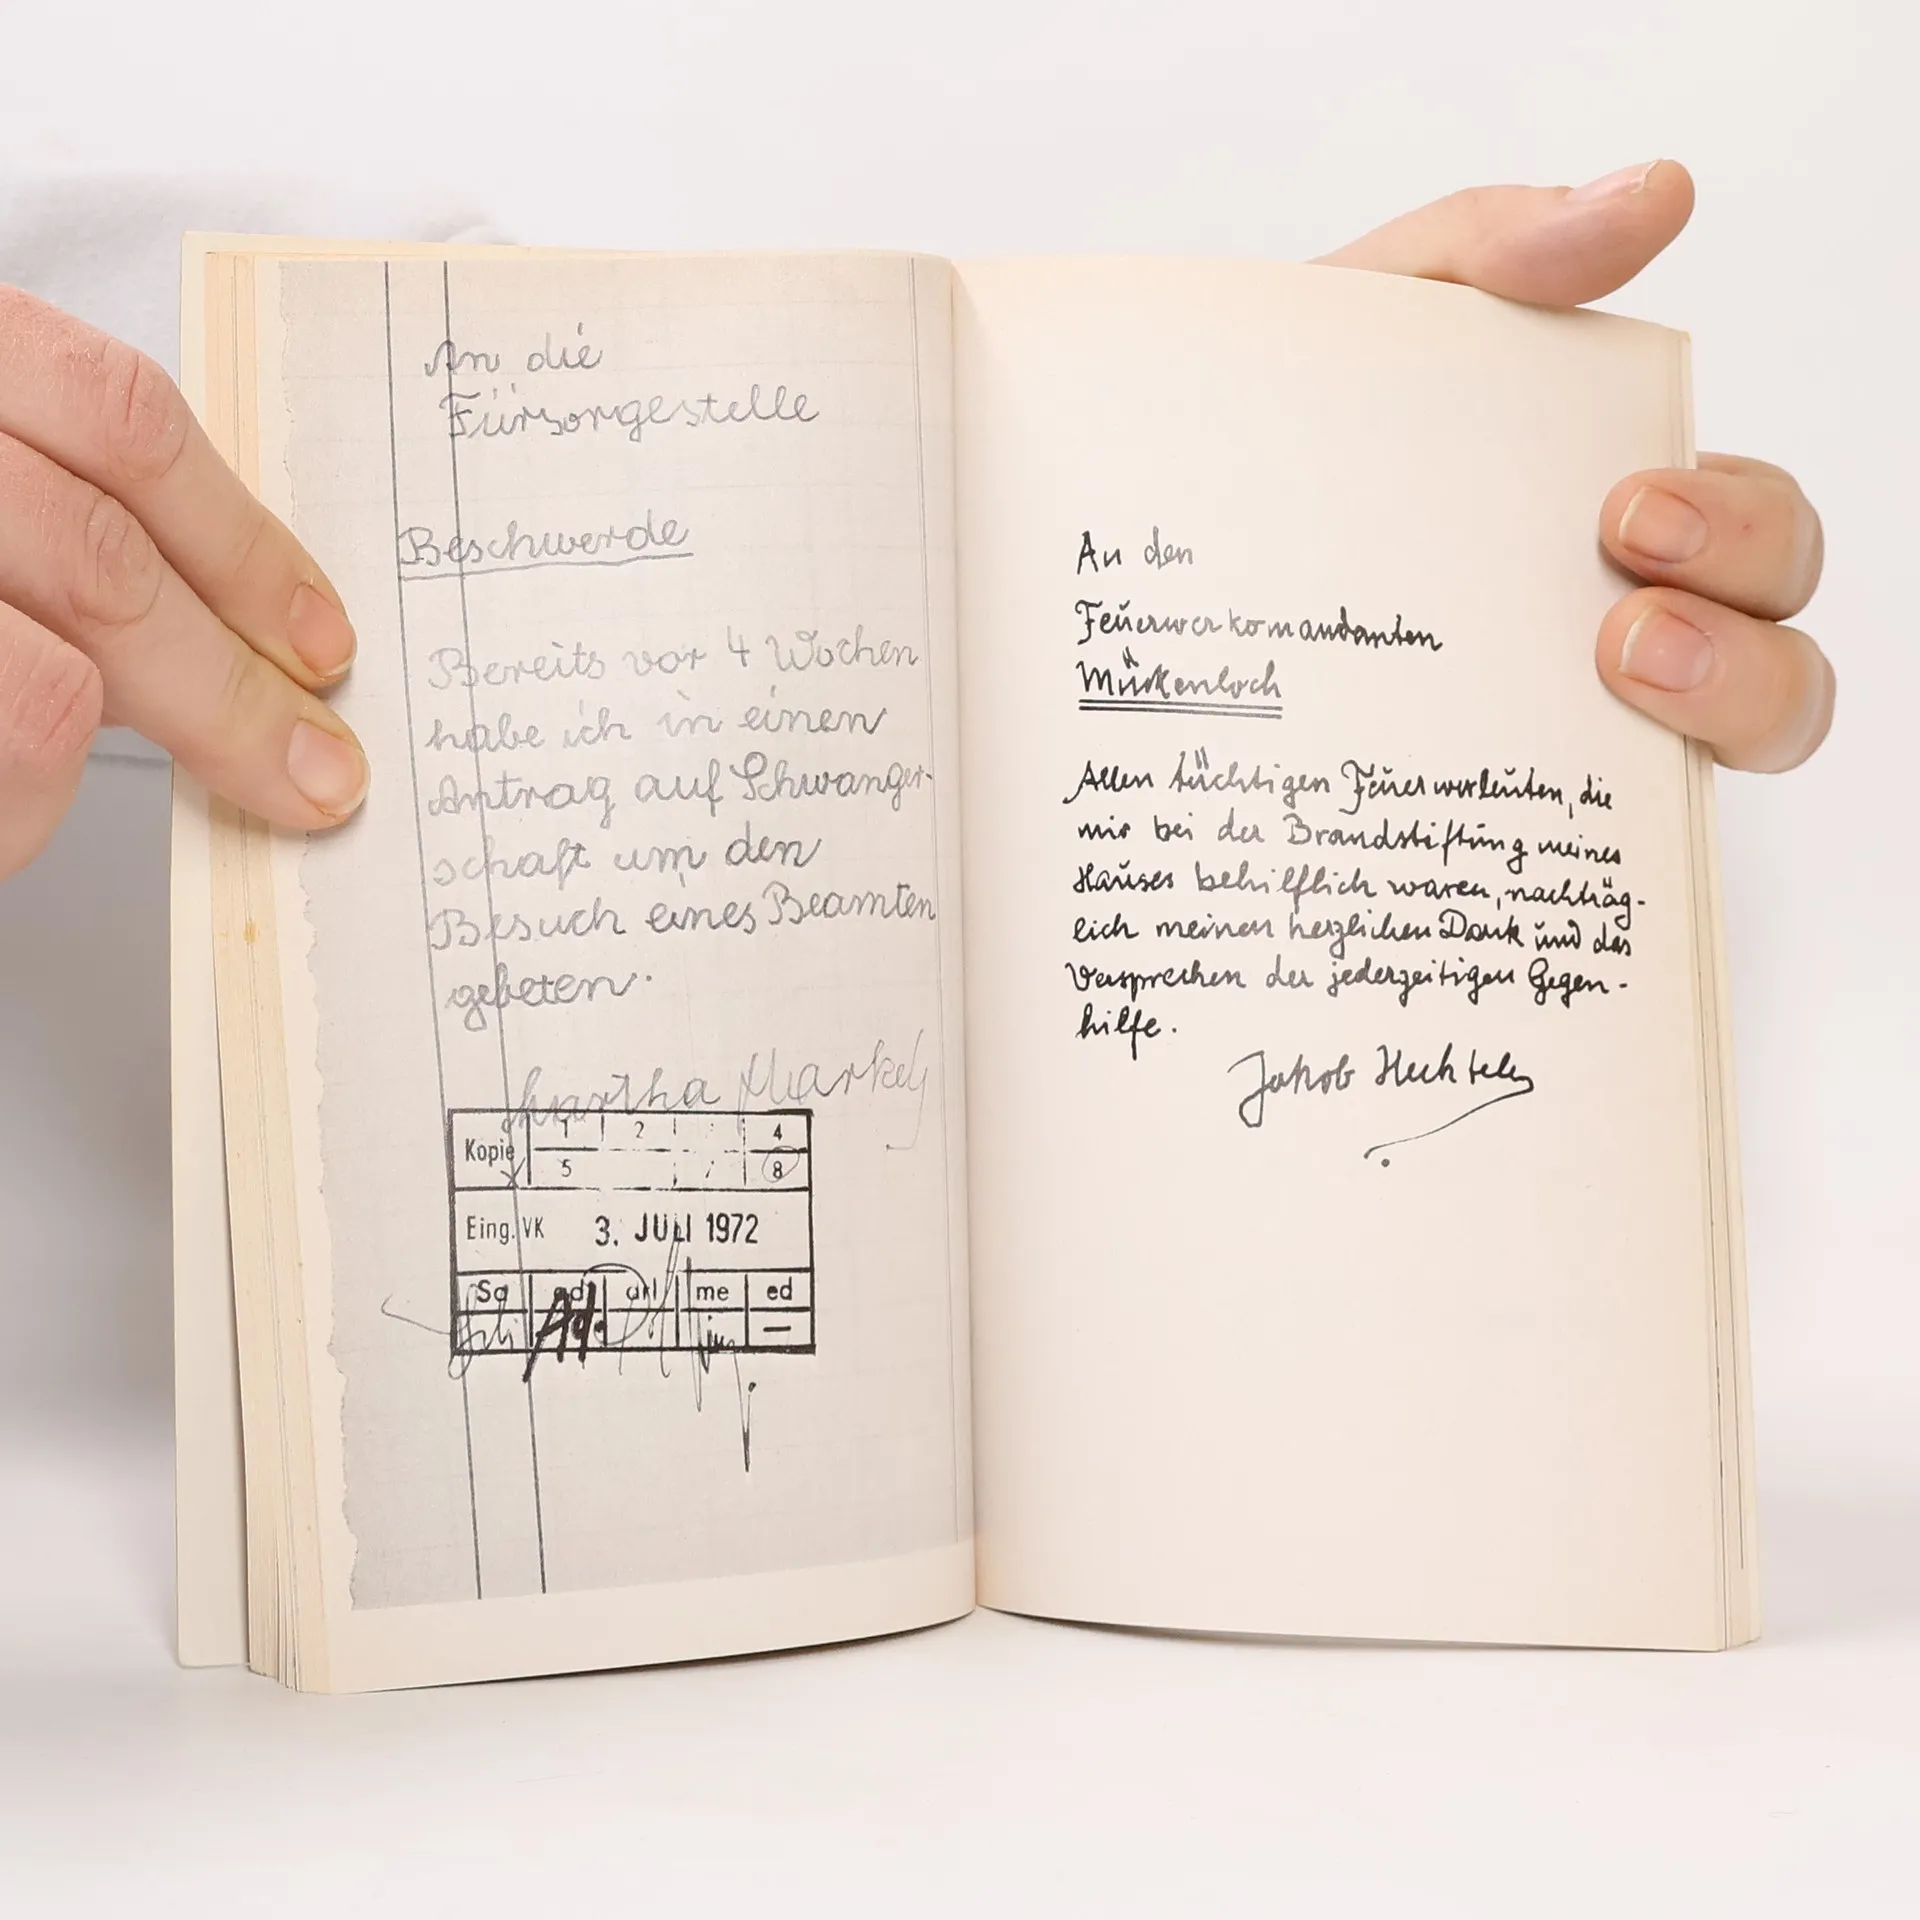 An die
Fürsorgestelle
Beschwerde
Bereits vor 4 Wochen
habe ich in einen
Antrag auf Schwanger-
schaft um den
Besuch eines Beamten
gebeten.
Martha
Kopie 1 2 4
5 8
Eing. VK 3. JULI 1972
Sa ad url me ed
Ad.
—
An den
Feuerwerkomandanten
Mückenloch
Allen tüchtigen Feuerwerleuten, die
mir bei der Brandstiftung meines
Hauses behilflich waren, nachträg-
lich meinen herzlichen Dank und das
Versprechen der jederzeitigen Gegen-
hilfe.
Jakob